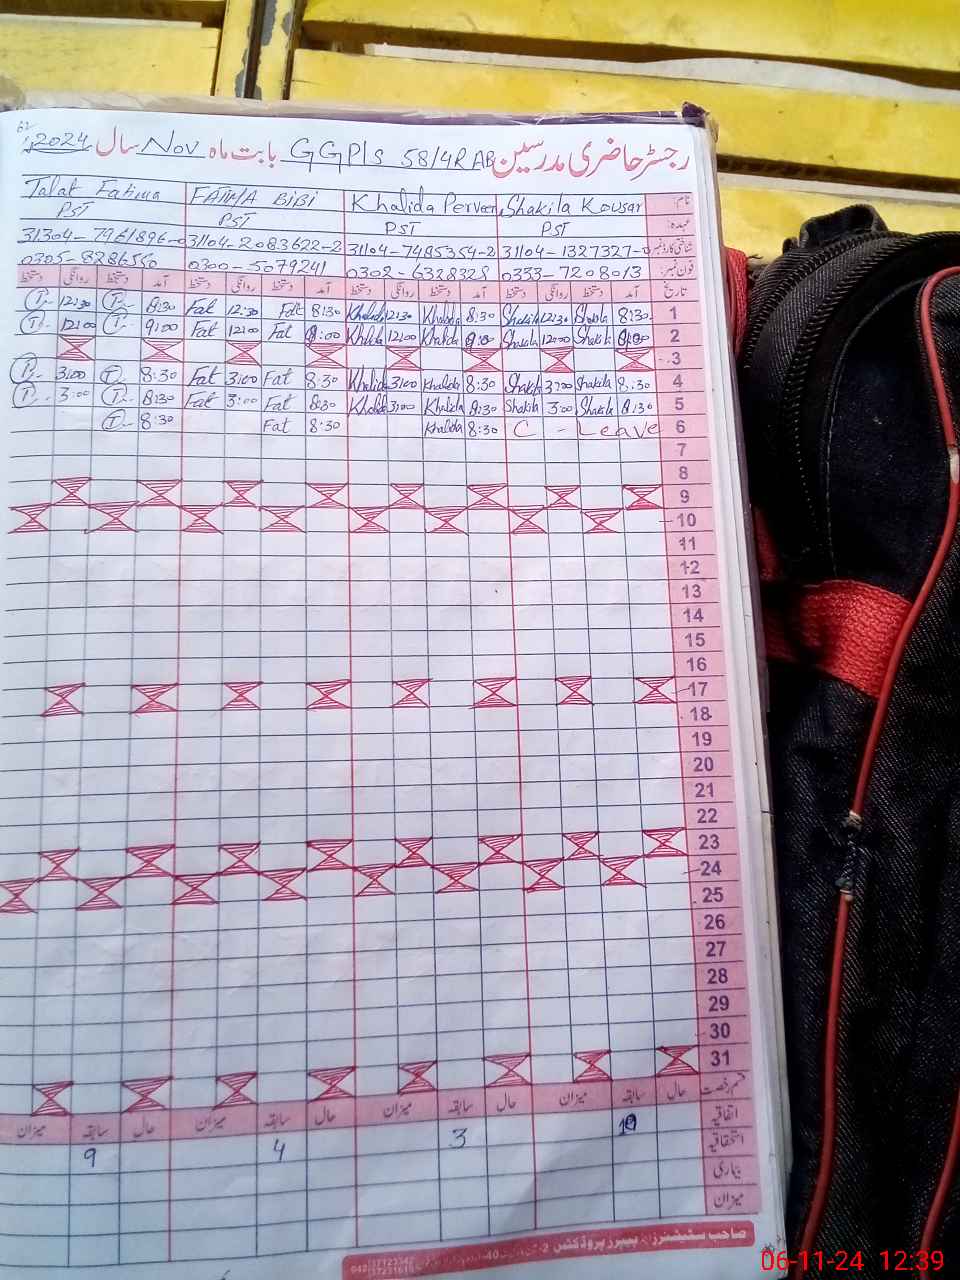 رجسٹر حاضری مدرسین GGPIS 58/4R AB بابت ماہ Nov سال 2024
نام: Shakila Kousar Khalida Perveen FATMA BIBI Talat Fatima
عہدہ: PST PST PST PST
شناختی کارڈ نمبر 31104-1327327- 31104-7485354-2 31104-2083622-2 31304-7961896-0
فون نمبر: 0333-7208013 0302-6328328 0300-5079241 0305-8286550
تاریخ آمد دستخط روانگی دستخط آمد دستخط روانگی دستخط آمد دستخط روانگی دستخط آمد دستخط روانگی دستخط
1 8:30 Shakila 12:30 Shakila 8:30 Khalida 12:30 Khalida 8:30 Fat 12:30 Fat 8:30 T 12:30 T
2 9:00 Shakila 12:00 Shakila 9:00 Khalida 12:00 Khalida 9:00 Fat 12:00 Fat 9:00 T 12:00 T
3
4 8:30 Shakila 3:00 Shakila 8:30 Khalida 3:00 Khalida 8:30 Fat 3:00 Fat 8:30 T 3:00 T
5 8:30 Shakila 3:00 Shakila 8:30 Khalida 3:00 Khalida 8:30 Fat 3:00 Fat 8:30 T 3:00 T
6 C - Leave 8:30 Khalida 8:30 Fat 8:30 T
7
8
9
10
11
12
13
14
15
16
17
18
19
20
21
22
23
24
25
26
27
28
29
30
31
قسم رخصت حال سابقہ میزان حال سابقہ میزان حال سابقہ میزان حال سابقہ میزان
اتفاقیہ 3 4 9
استحقاقیہ
بیماری
میزان
صاحب سٹیشنرز، پیپرز پروڈکٹس
06-11-24 12:39